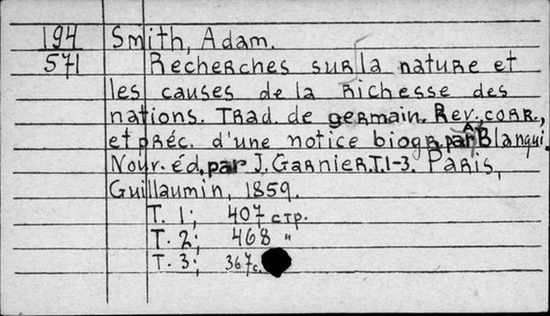 194 Smith, Adam.
571 Recherches sur la nature et
les causes de la richesse des
nations. Trad. de germain. Rev. corr.,
et préc. d'une notice biogr. par A. Blanqui.
Nouv. éd. par J. Garnier. T. 1-3. Paris,
Guillaumin, 1859.
T. 1; 407 стр.
T. 2; 468 "
T. 3; 367 с.